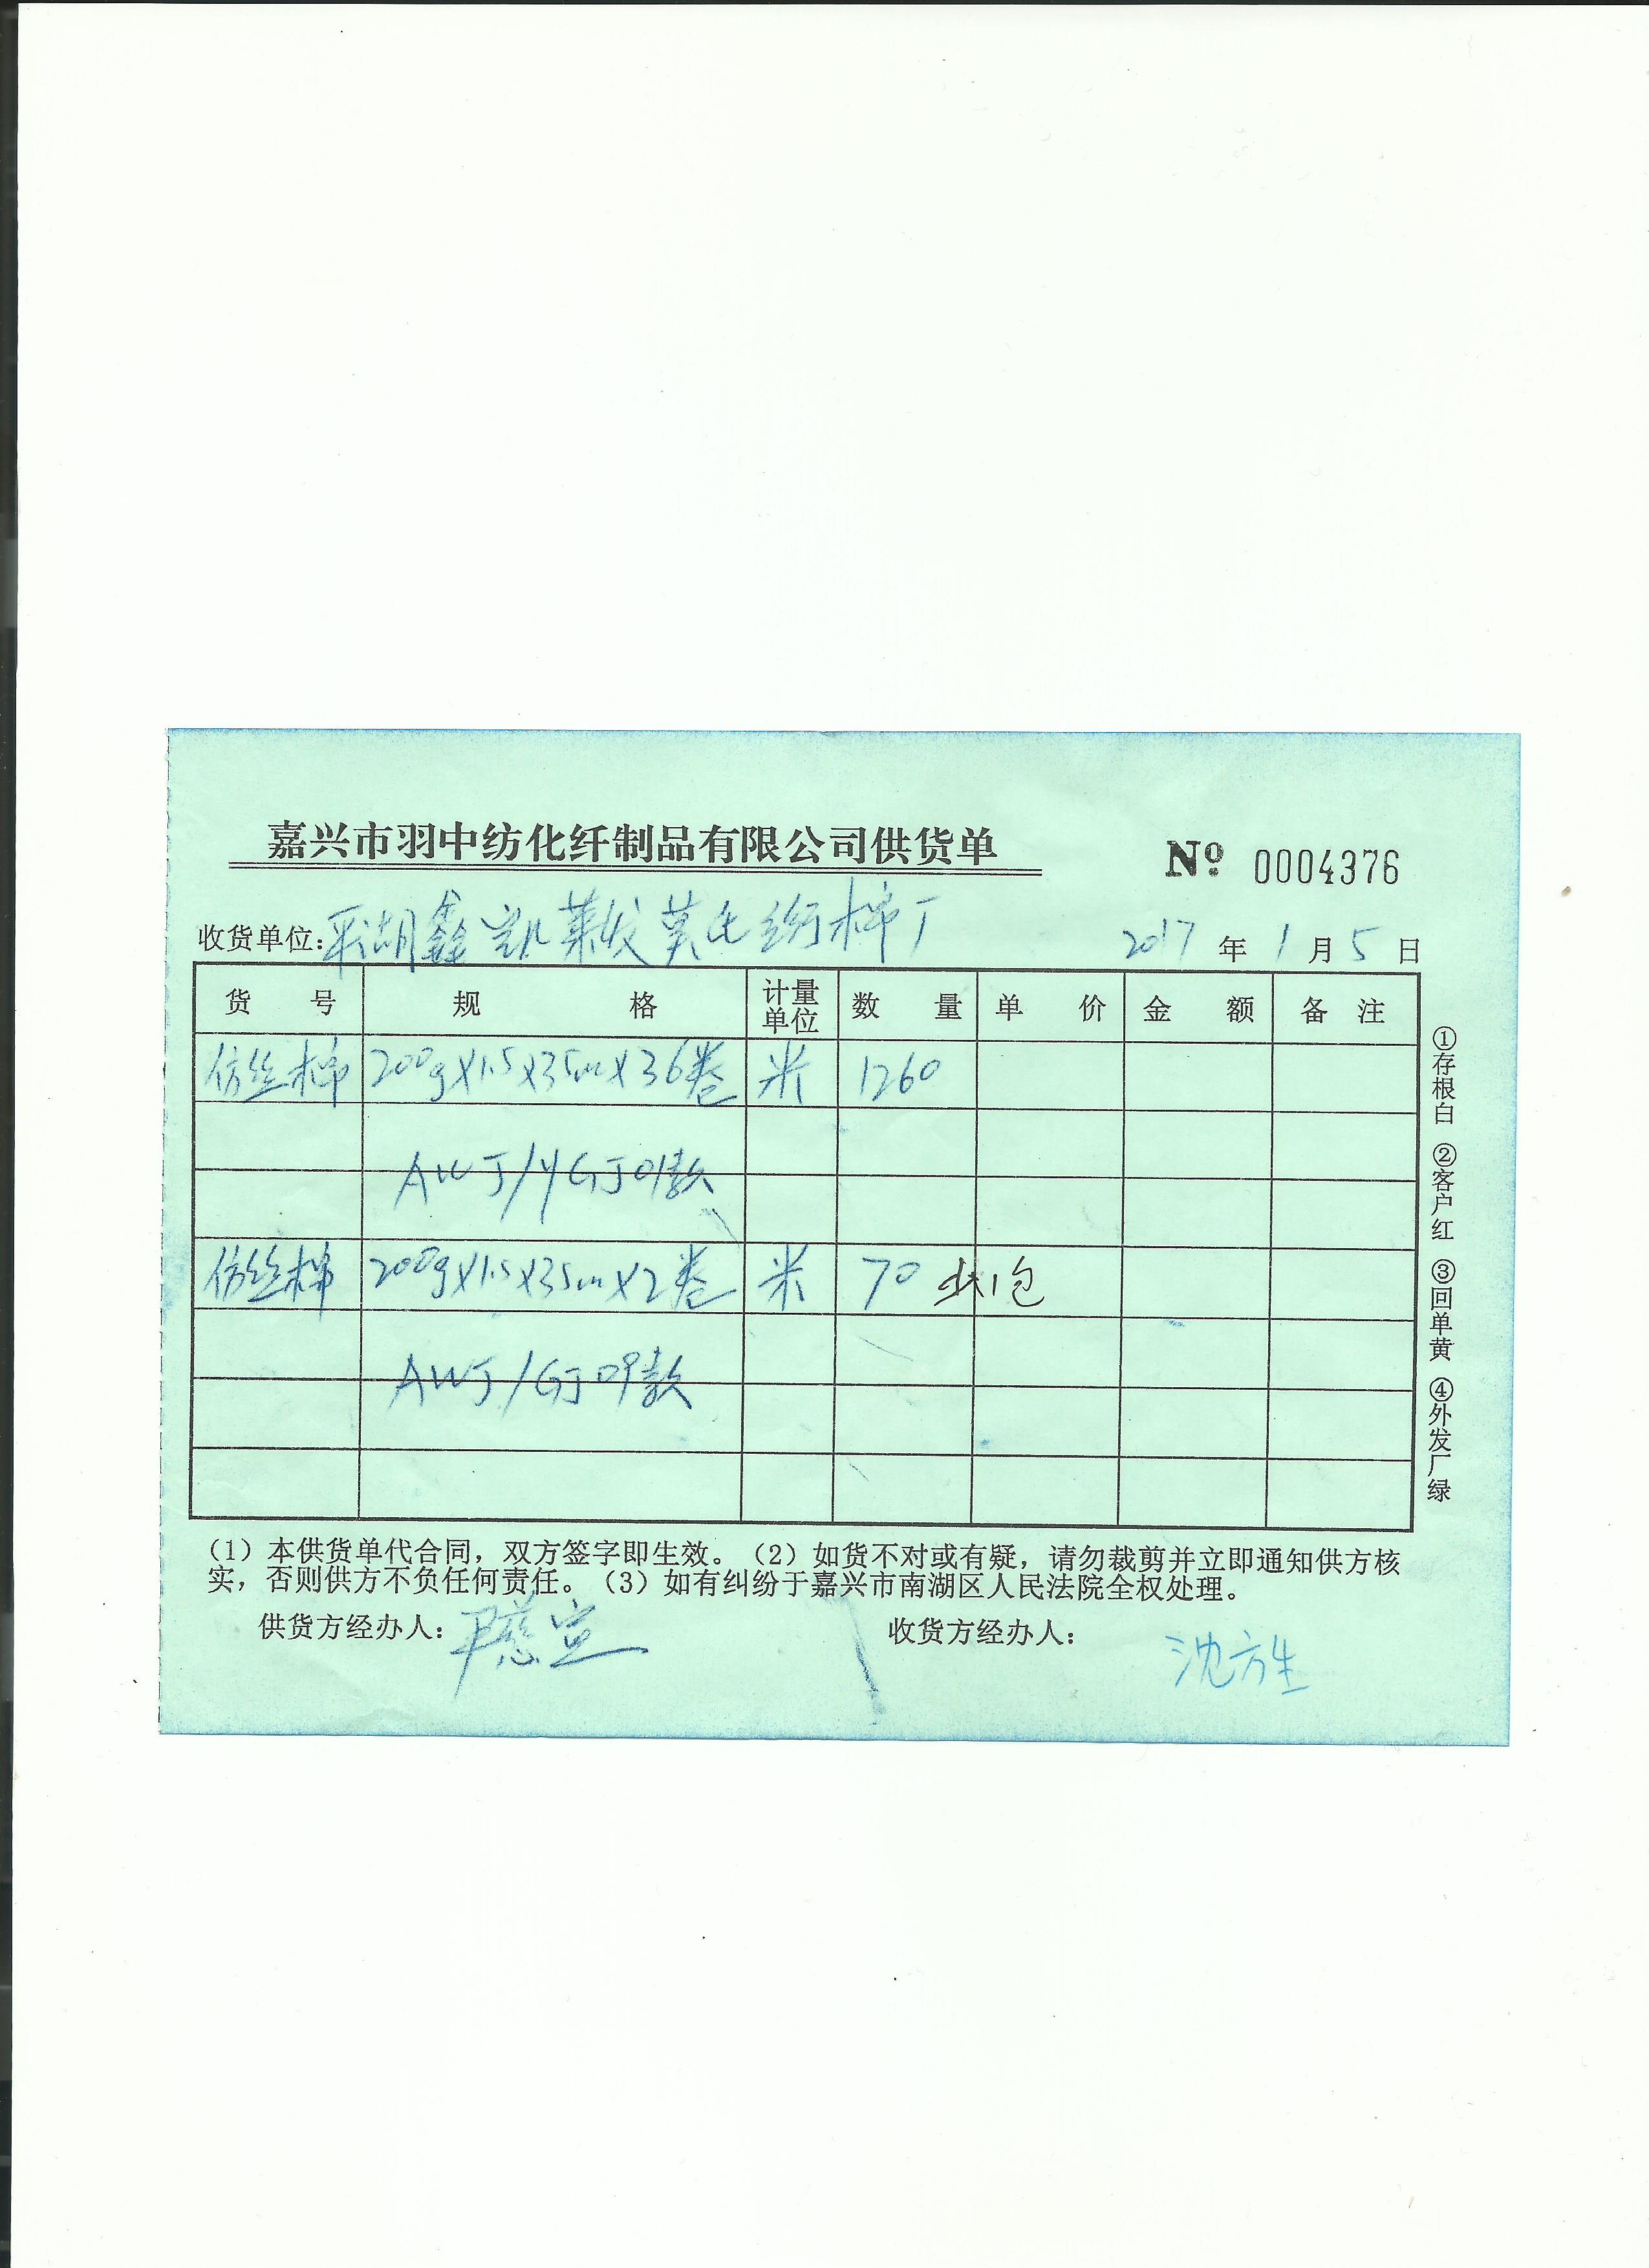 嘉兴市羽中纺化纤制品有限公司供货单
№ 0004376
收货单位:平湖鑫凯莱发莫氏绗棉厂 2017年1月5日
货号 规格 计量单位 数量 单价 金额 备注
仿丝棉 200g×1.5×35m×36卷 米 1260
AWJ/YGJ01款
仿丝棉 200g×1.5×35m×2卷 米 70 1包
AWJ/GJ09款
①存根白 ②客户红 ③回单黄 ④外发厂绿
(1)本供货单代合同,双方签字即生效。(2)如货不对或有疑,请勿裁剪并立即通知供方核
实,否则供方不负任何责任。(3)如有纠纷于嘉兴市南湖区人民法院全权处理。
供货方经办人: 收货方经办人:沈方生